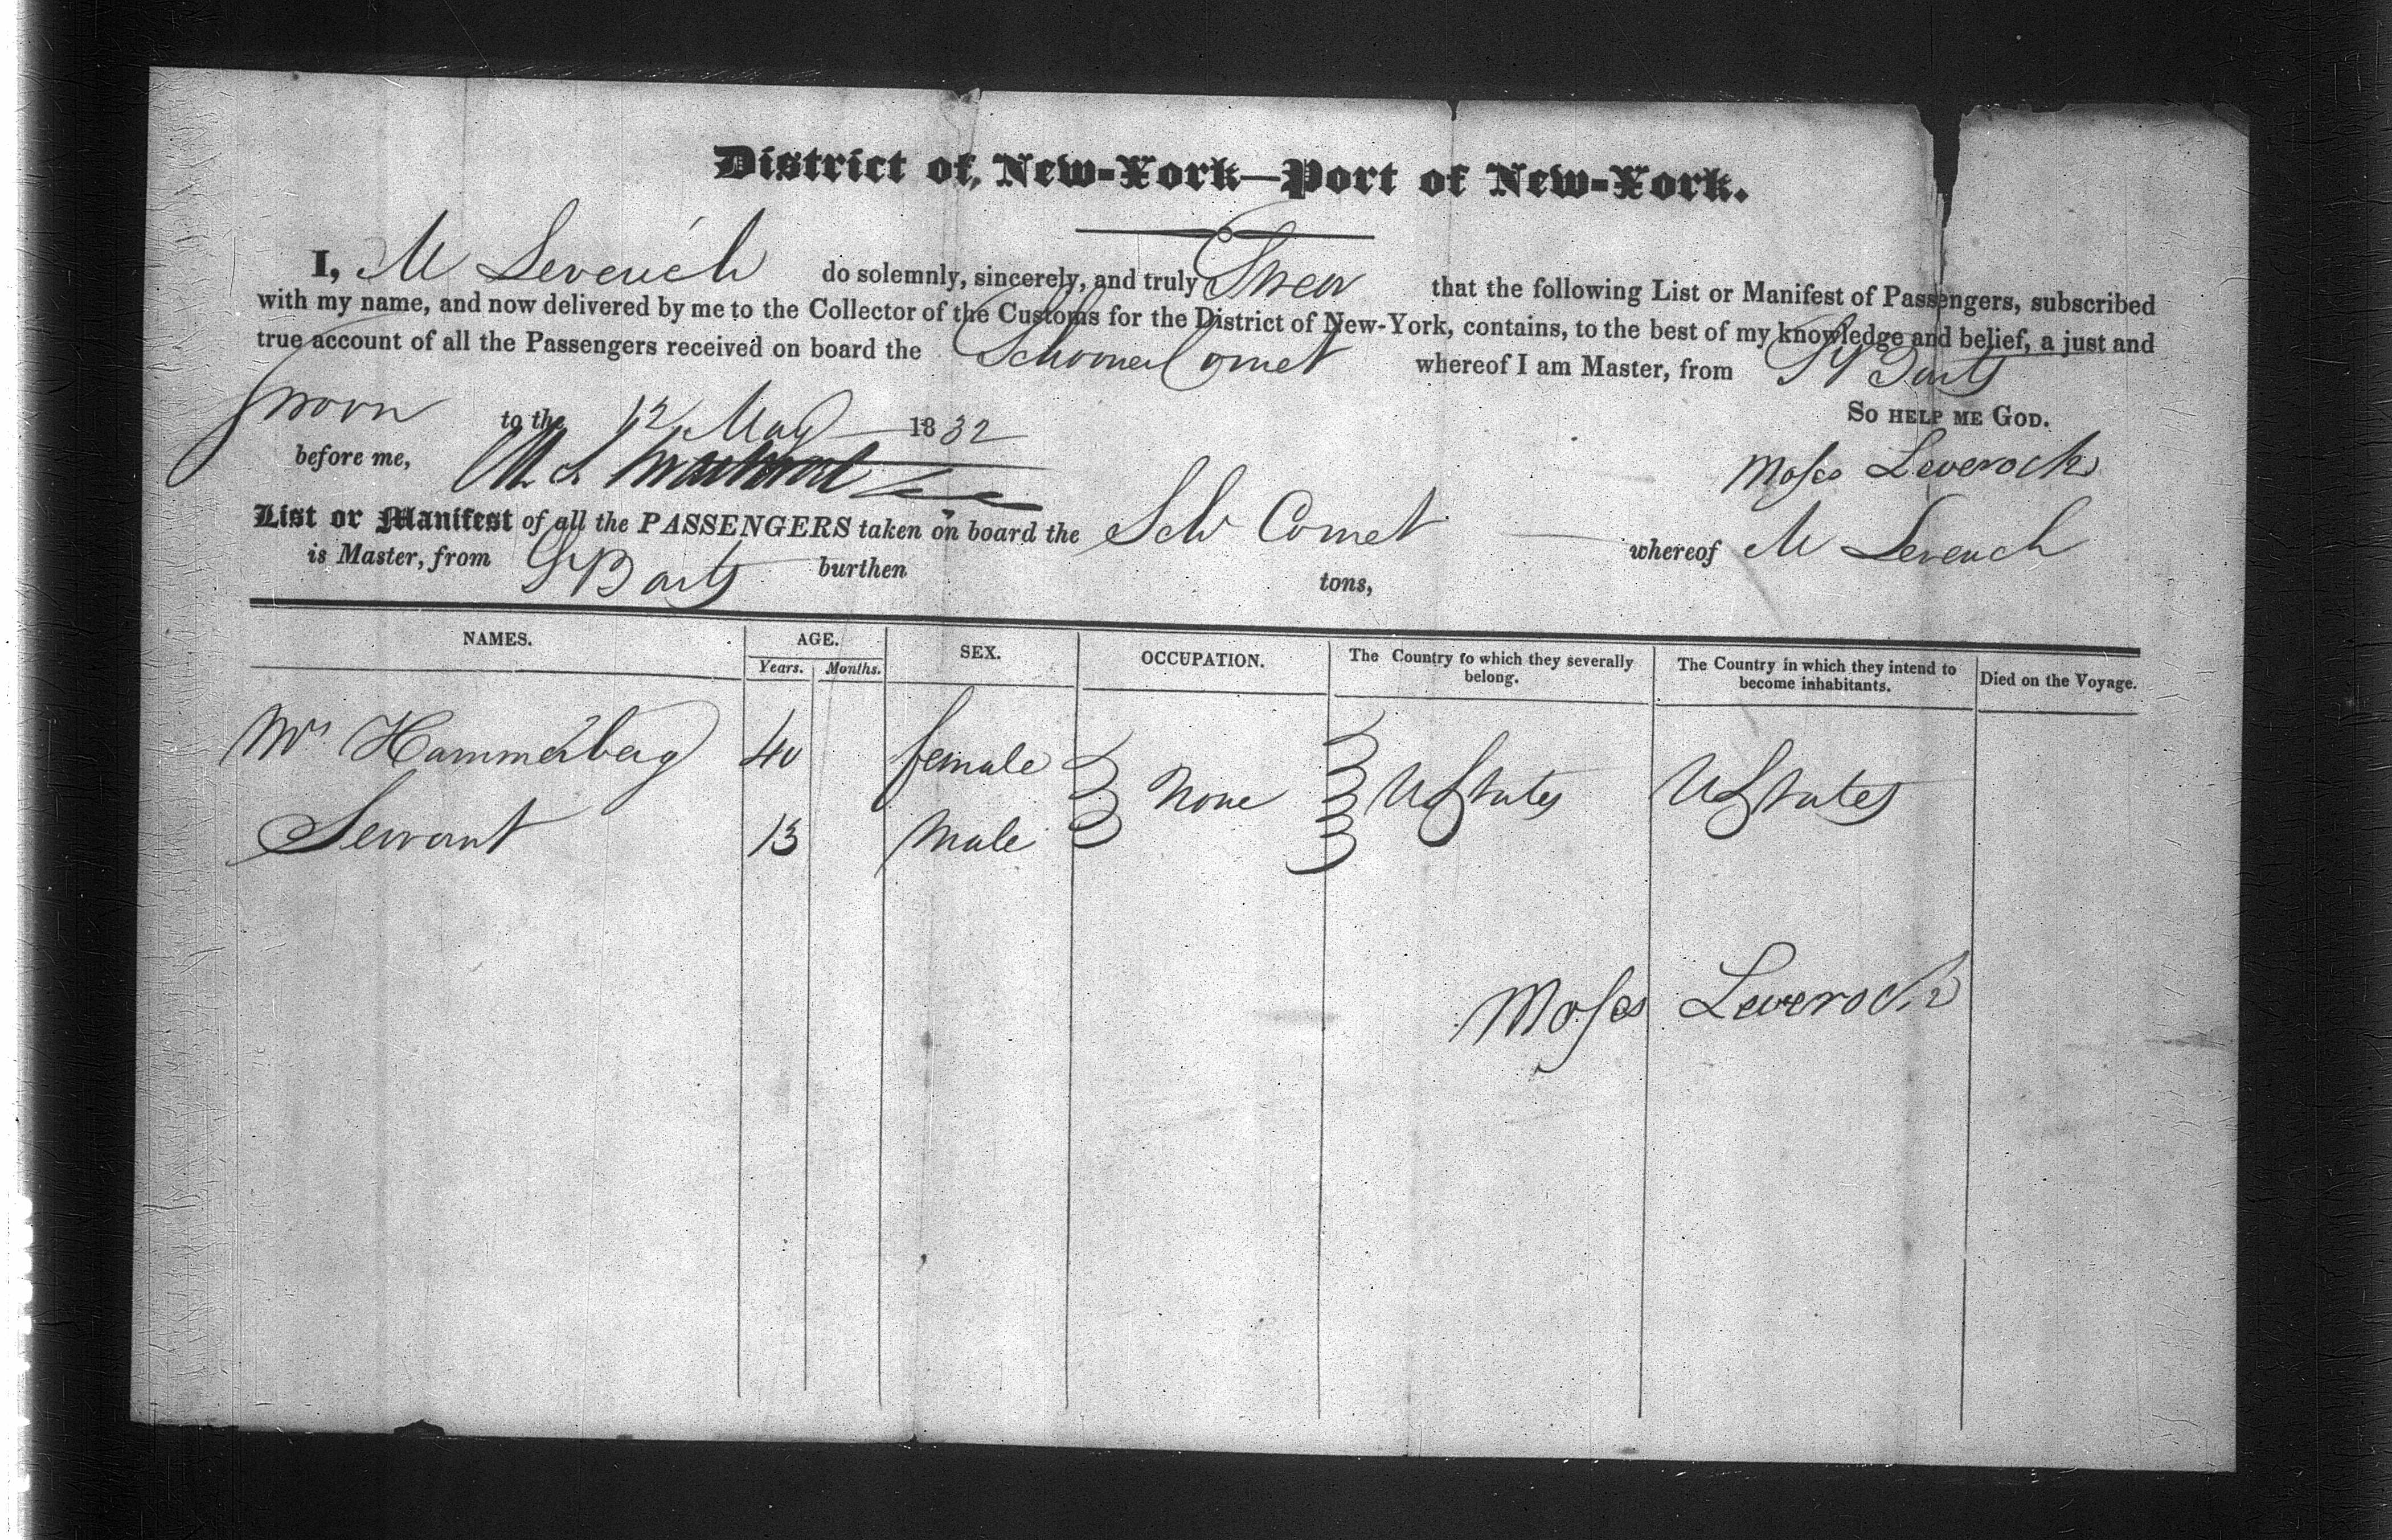 District of New-York—Port of New-York.
I, M Leverich do solemnly, sincerely, and truly Swear that the following List or Manifest of Passengers, subscribed
with my name, and now delivered by me to the Collector of the Customs for the District of New-York, contains, to the best of my knowledge and belief, a just and
true account of all the Passengers received on board the Schooner Comet whereof I am Master, from St Barts
Sworn to the 12 May 1832 So help me God.
before me, Moses Leverock
List or Manifest of all the PASSENGERS taken on board the Schr Comet whereof M Leverich
is Master, from St Barts burthen tons,
NAMES. AGE. SEX. OCCUPATION. The Country to which they severally belong. The Country in which they intend to become inhabitants. Died on the Voyage.
Years. Months.
Mrs Hammerberg 40 female None U States U States
Servant 13 Male
Moses Leverock